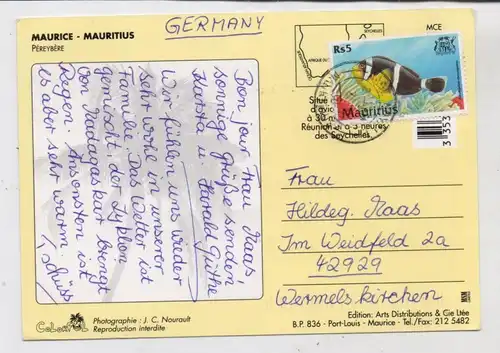 GERMANY
MAURICE - MAURITIUS
PÉREYBÈRE
MCE
SEYCHELLES
AFRIQUE DU
Rs5
Mauritius
Situé
d'avio
à 30 m
Réunion et à 3 heures
des Seychelles
3 353
Bon jour Frau Maas,
sonnige Grüße senden
Karsta u. Harald Güthe
Wir fühlen uns wieder
sehr wohl in unserer
Familie. Das Wetter ist
gemischt der Zyklon
von Madagaskar bringt
Regen. Ansonsten ist
es aber sehr warm.
Tschüss
Frau
Hildeg. Maas
Im Weidfeld 2a
42929
Wermelskirchen
Photographie : J. C. Nourault
Reproduction interdite
Edition: Arts Distributions & Gie Ltée
B.P. 836 - Port-Louis - Maurice - Tel./Fax: 212 5482